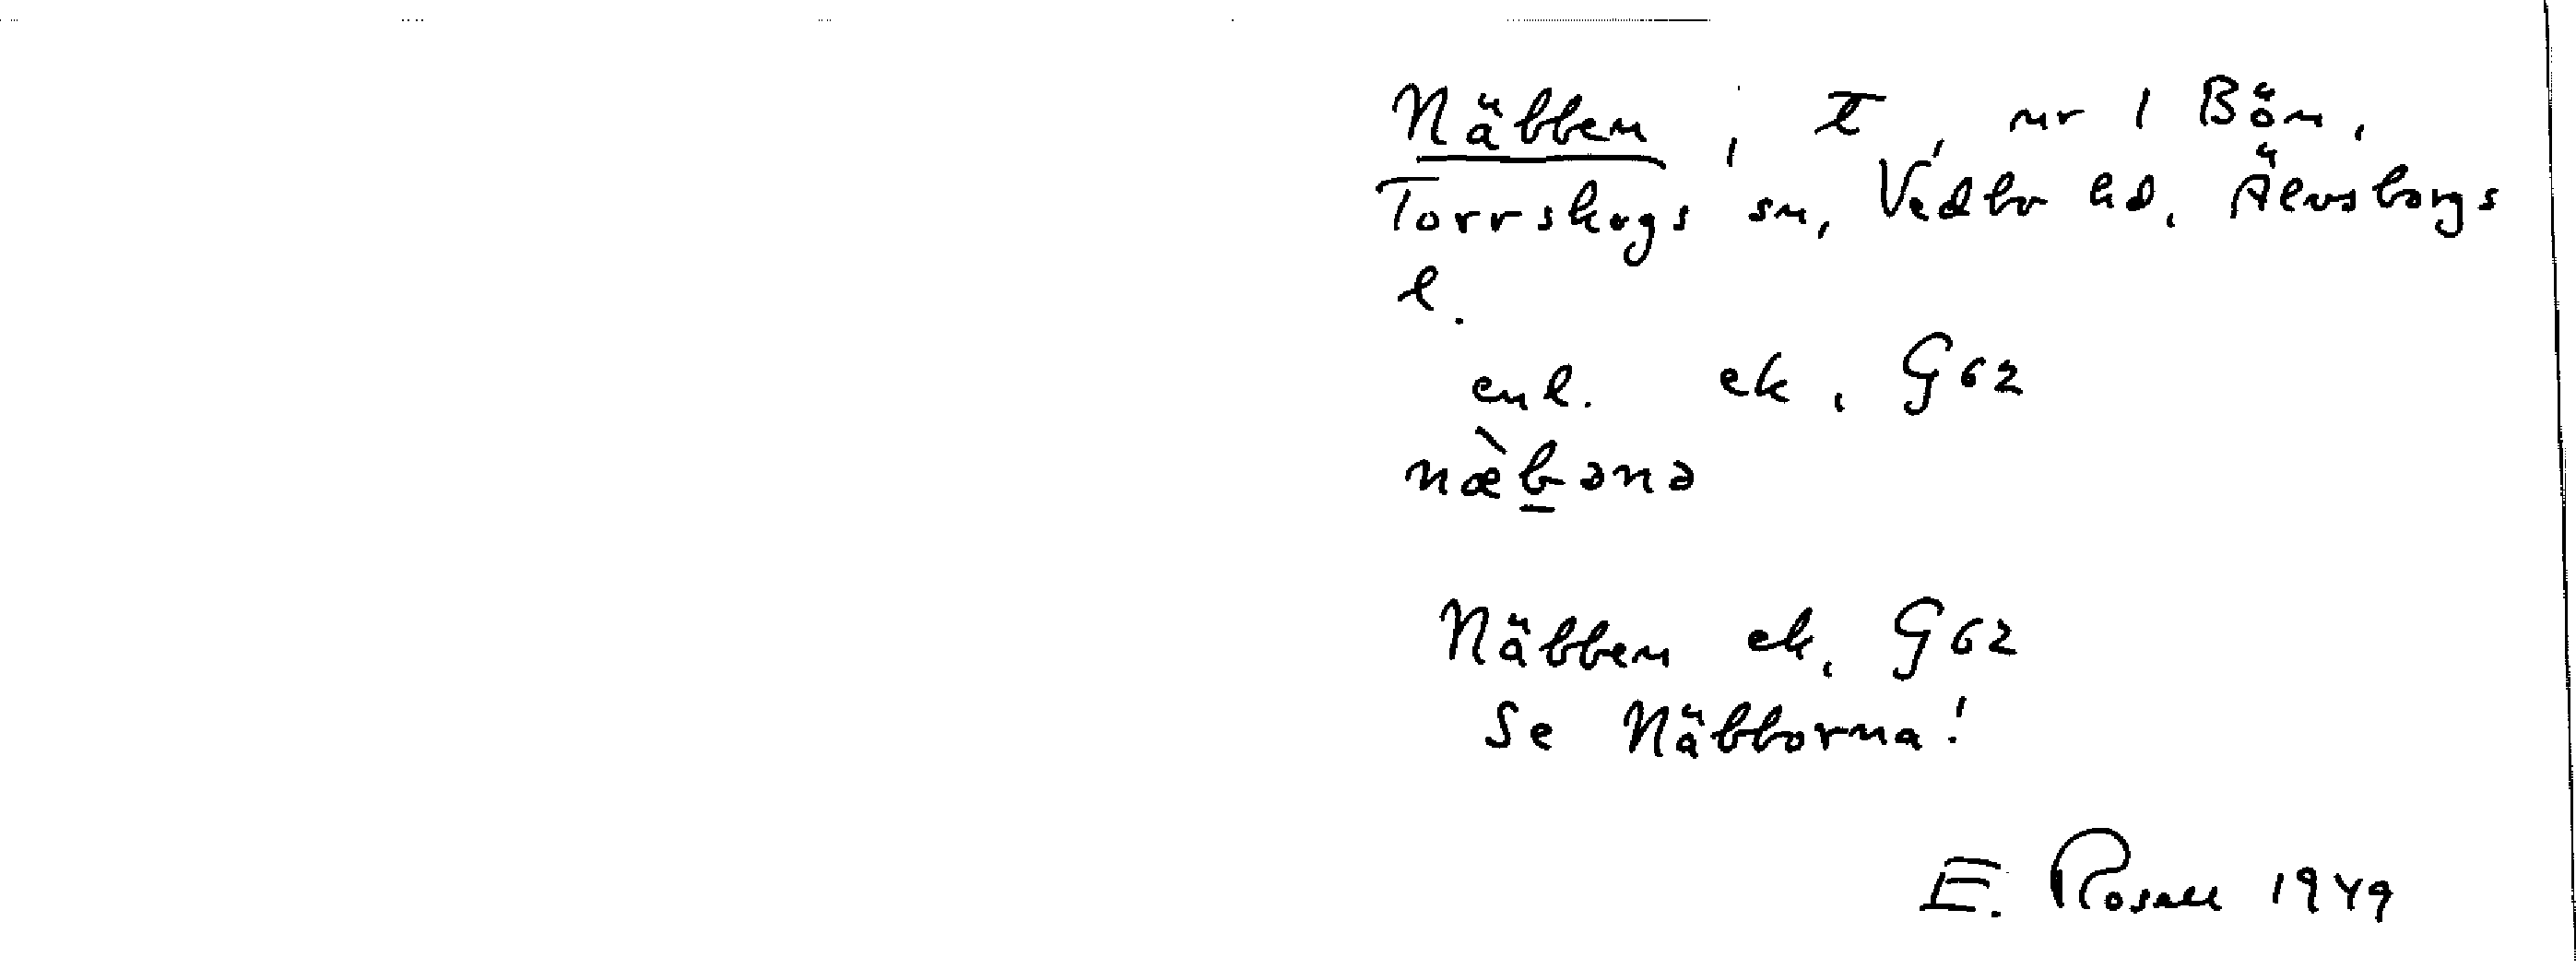 Näbben, t, nr 1 Bön,
Torrskogs sn, Vedbo hd, Älvsborgs
l.
enl. ek, G62
næ̀b̲ənə
Näbben ek, G62
Se Näbborna!
E. Rosell 1949